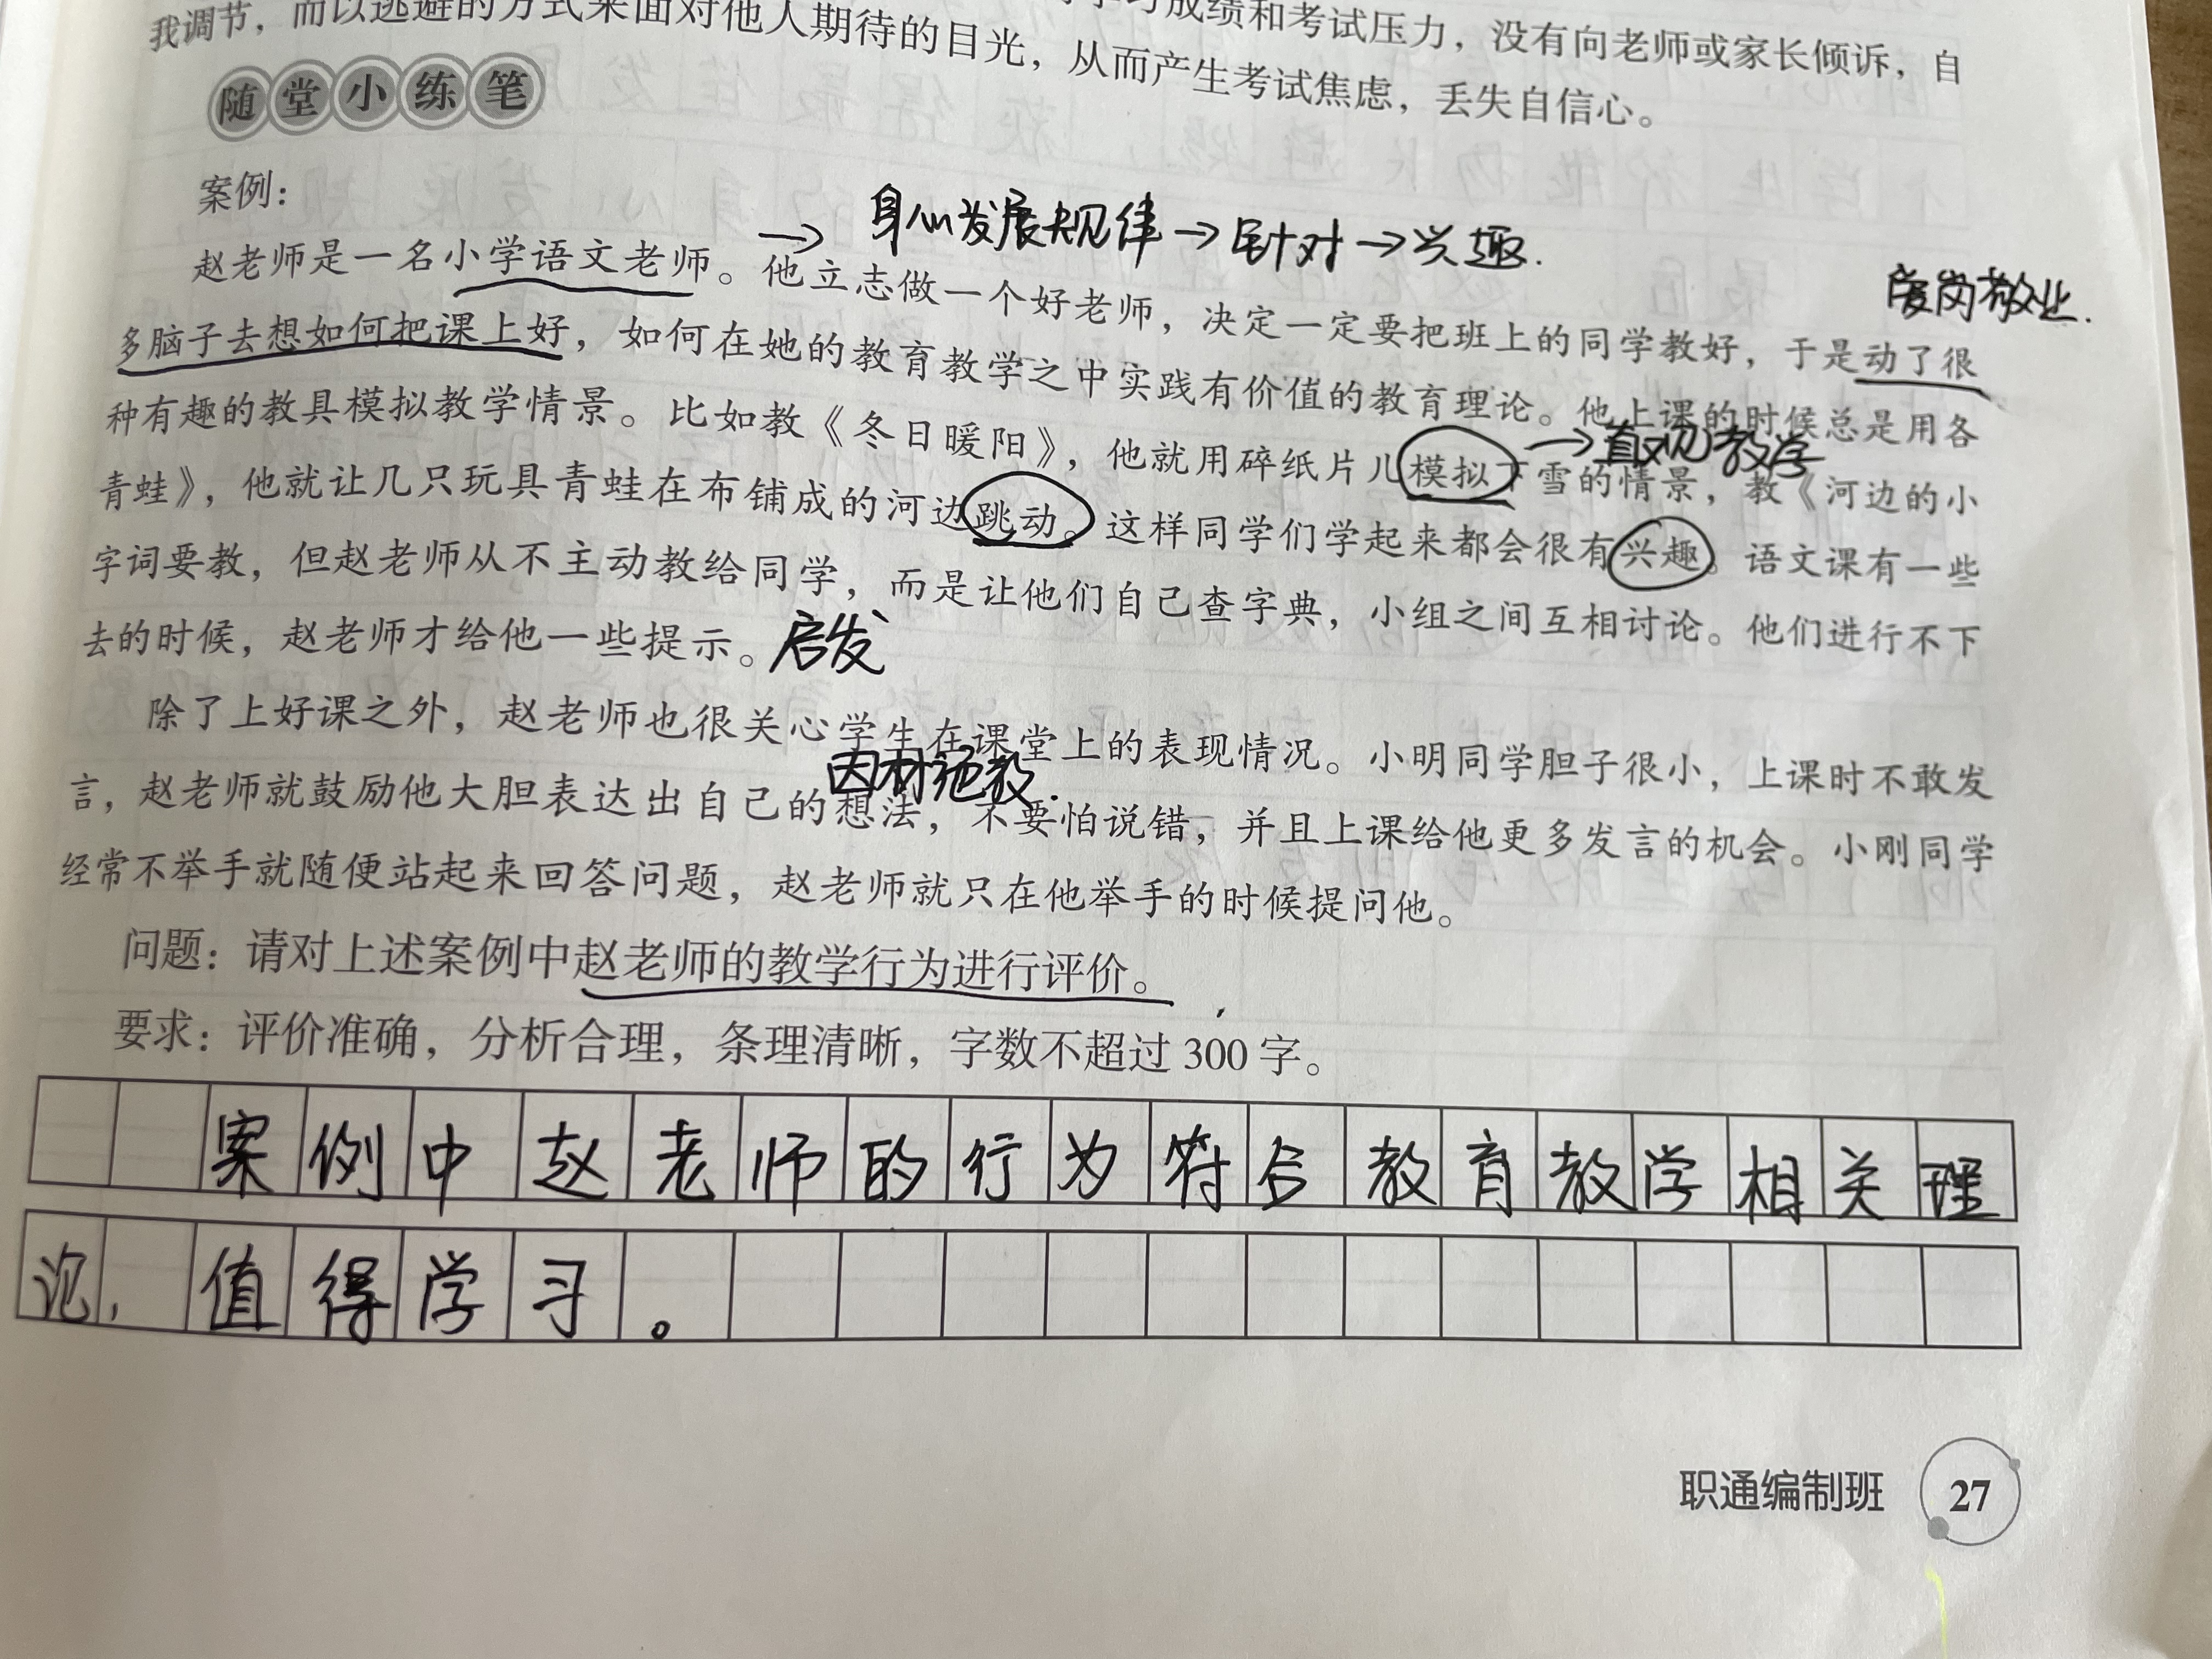 学习成绩和考试压力，没有向老师或家长倾诉，自
我调节，而以逃避的方式来面对他人期待的目光，从而产生考试焦虑，丢失自信心。
随堂小练笔
案例：
→身心发展规律→针对→兴趣.
赵老师是一名小学语文老师。他立志做一个好老师，决定一定要把班上的同学教好，于是动了很
爱岗敬业.
多脑子去想如何把课上好，如何在她的教育教学之中实践有价值的教育理论。他上课的时候总是用各
种有趣的教具模拟教学情景。比如教《冬日暖阳》，他就用碎纸片儿模拟下雪的情景，教《河边的小
→直观教学
青蛙》，他就让几只玩具青蛙在布铺成的河边跳动。这样同学们学起来都会很有兴趣。语文课有一些
字词要教，但赵老师从不主动教给同学，而是让他们自己查字典，小组之间互相讨论。他们进行不下
去的时候，赵老师才给他一些提示。启发
除了上好课之外，赵老师也很关心学生在课堂上的表现情况。小明同学胆子很小，上课时不敢发
因材施教.
言，赵老师就鼓励他大胆表达出自己的想法，不要怕说错，并且上课给他更多发言的机会。小刚同学
经常不举手就随便站起来回答问题，赵老师就只在他举手的时候提问他。
问题：请对上述案例中赵老师的教学行为进行评价。
要求：评价准确，分析合理，条理清晰，字数不超过 300 字。
案例中赵老师的行为符合教育教学相关理
论，值得学习。
职通编制班 27